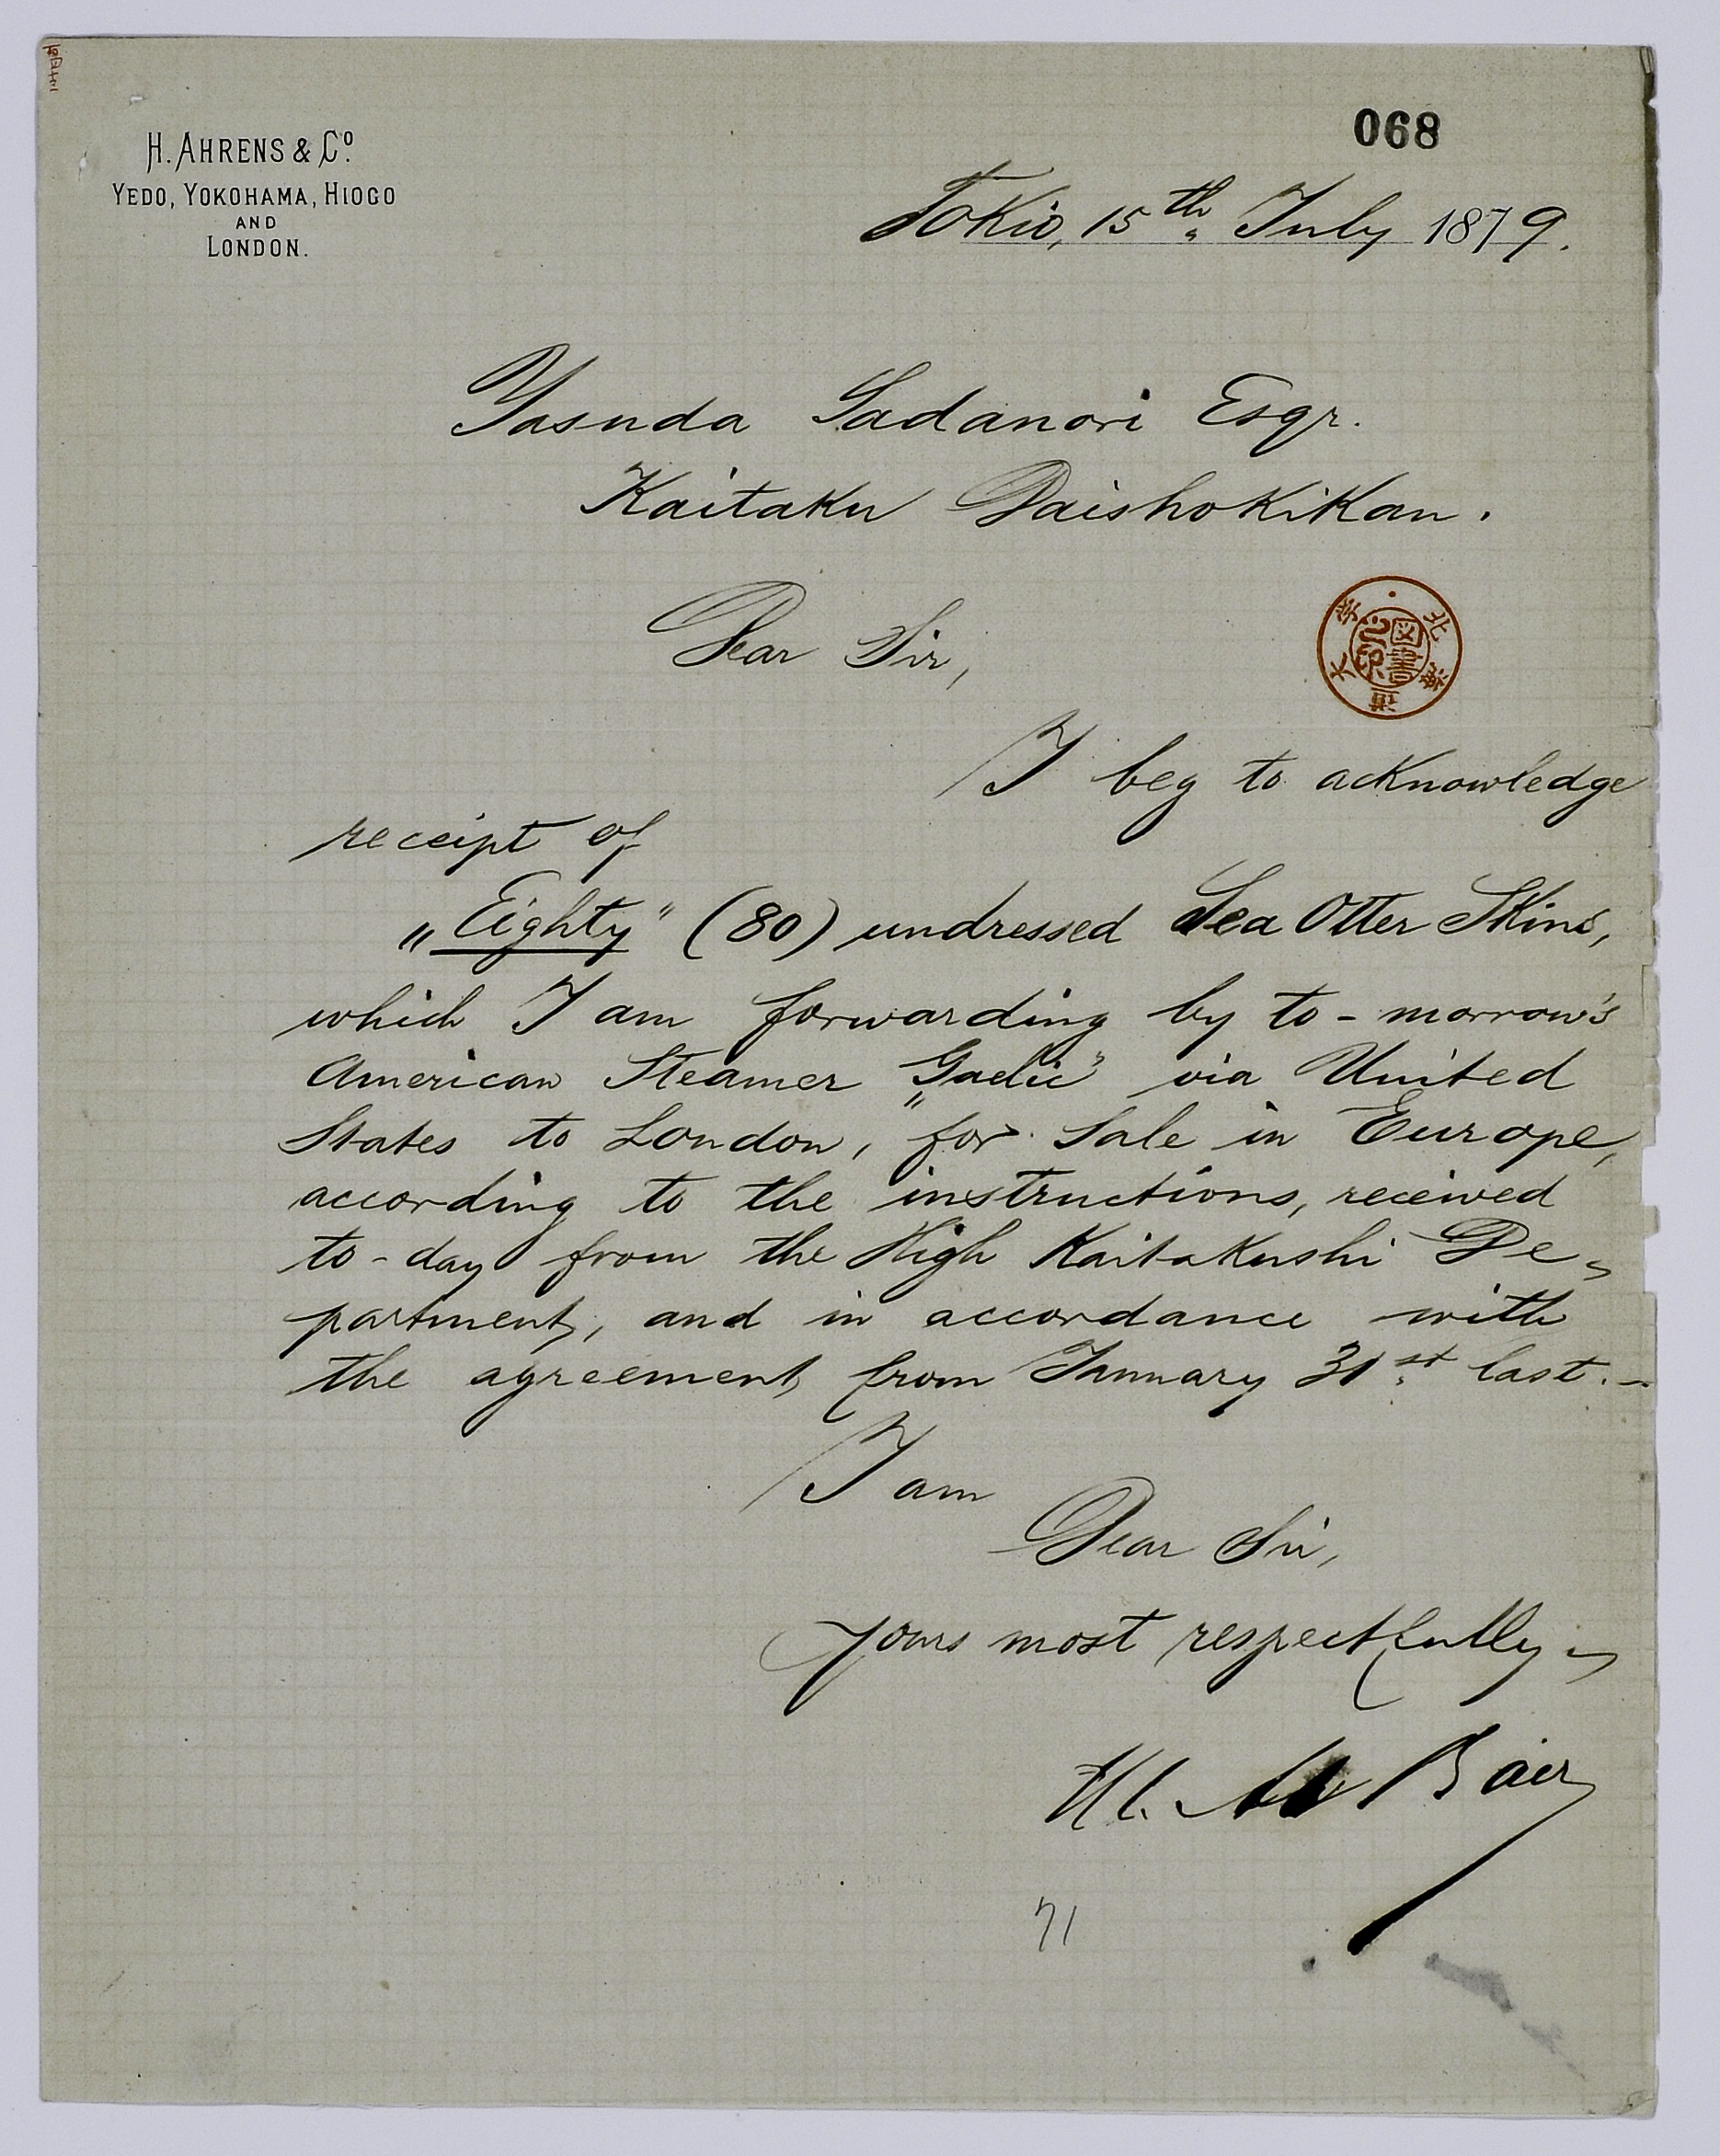 068
H. AHRENS & Co.
YEDO, YOKOHAMA, HIOGO
AND
LONDON.
Tokio, 15th July 1879.
Yasuda Sadanori Esqr.
Kaitaku Daishokikan.
Dear Sir,
北海道大学
図書
I beg to acknowledge
receipt of
„Eighty" (80) undressed Sea Otter Skins,
which I am forwarding by to-morrow's
American Steamer „Gaelic" via United
States to London, for Sale in Europe,
according to the instructions, received
to-day from the High Kaitakushi De-
partment, and in accordance with
the agreement from January 31st last. -
I am
Dear Sir,
yours most respectfully
M. M. Bair
71